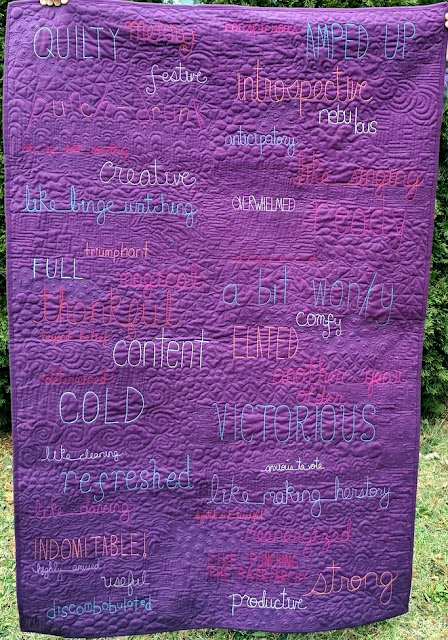 QUILTY
merry
AMPED UP
festive
introspective
punch-drunk
nebulous
anticipatory
creative
like singing
like binge watching
OVERWHELMED
ready
triumphant
FULL
magical
a bit wonky
thankful
comfy
content
ELATED
another year older
determined
COLD
VICTORIOUS
like cleaning
anxious to vote
refreshed
like making herstory
like dancing
reenergized
INDOMITABLE!
highly amused
useful
strong
productive
discombobulated